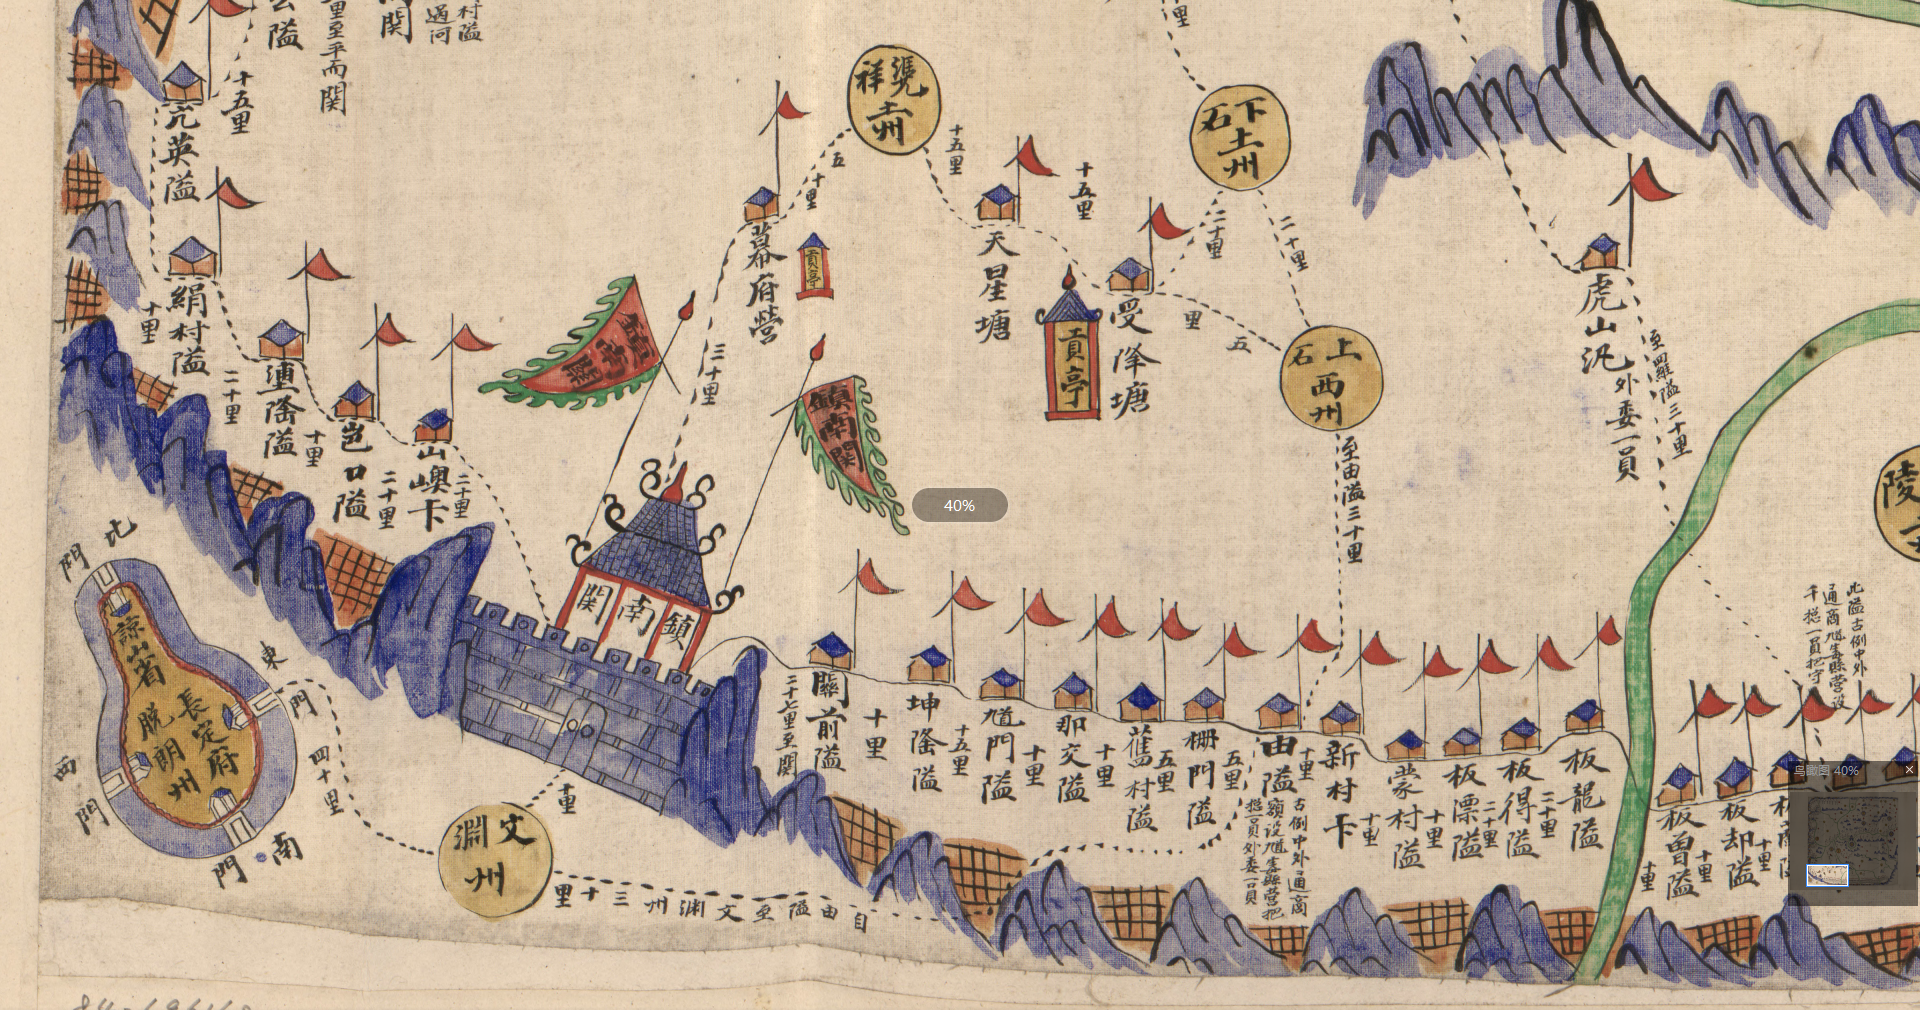 隘
里至平而関
関
過河
村隘
里
十五里
亢英隘
絹村隘
十里
二十里
連隆隘
十里
岜口隘
二十里
山嶼卡
二十里
幕府營
貢亭
三十里
五十里
凭祥土州
十五里
天星塘
十五里
受降塘
貢亭
二十里
下石土州
二十里
五里
上石西州
至由隘三十里
虎山汛
外委一員
至羅隘三十里
陵
鎮南関
鎮南関
諒山省
長定府
脱朗州
北門
東門
南門
西門
四十里
文淵州
十里
自由隘至文淵州三十里
二十七里至関
関前隘
十里
坤隆隘
十五里
馗門隘
十里
那交隘
十里
舊村隘
五里
柵門隘
五里
由隘
古例中外通商
額設馗纛縣營把
搃一員外委一員
十里
新村卡
十里
蒙村隘
十里
板漂隘
二十里
板得隘
二十里
板龍隘
十里
板曽隘
十里
板却隘
十里
此隘古例中外
通商馗纛縣營設
千搃一員把守
40%
鸟瞰图 40%